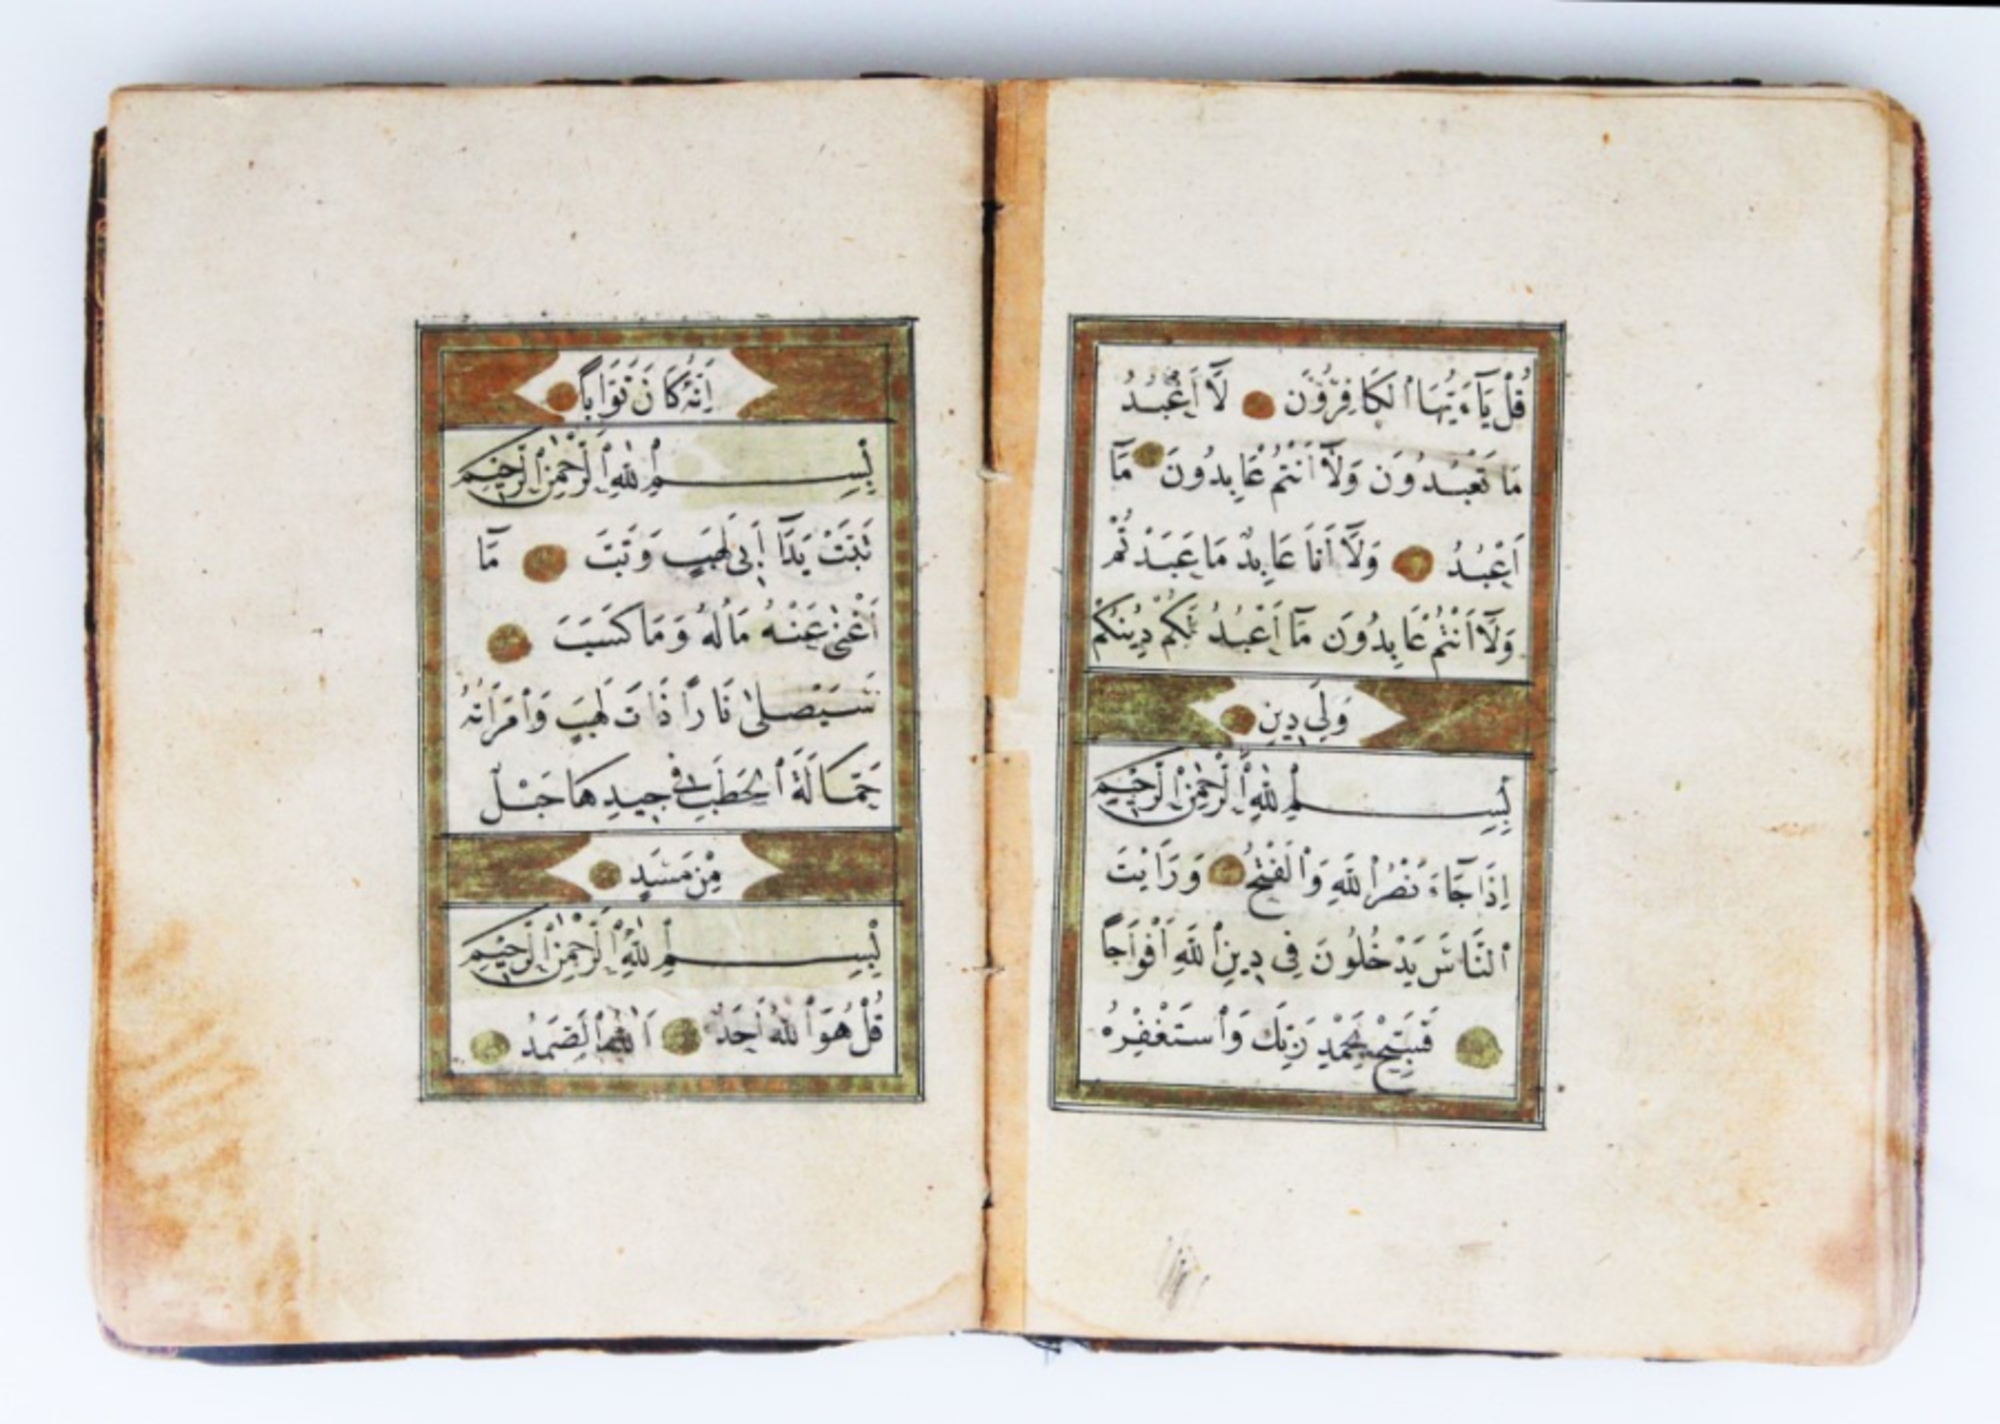 قُلْ يَآءَيُّهَا ٱلْكَافِرُونَ لَآ اَعْبُدُ
مَا تَعْبُدُونَ وَلَآ اَنْتُمْ عَابِدُونَ مَآ
اَعْبُدُ وَلَآ اَنَا عَابِدٌ مَا عَبَدْتُمْ
وَلَآ اَنْتُمْ عَابِدُونَ مَآ اَعْبُدُ لَكُمْ دِينُكُمْ
وَلِيَ دِينِ
بِسْمِ ٱللّٰهِ ٱلرَّحْمٰنِ ٱلرَّحِيمِ
اِذَا جَآءَ نَصْرُ ٱللّٰهِ وَٱلْفَتْحُ وَرَاَيْتَ
ٱلنَّاسَ يَدْخُلُونَ فِى دِينِ ٱللّٰهِ اَفْوَاجًا
فَسَبِّحْ بِحَمْدِ رَبِّكَ وَٱسْتَغْفِرْهُ
اِنَّهُ كَانَ تَوَّابًا
بِسْمِ ٱللّٰهِ ٱلرَّحْمٰنِ ٱلرَّحِيمِ
تَبَّتْ يَدَآ اَبِى لَهَبٍ وَتَبَّ مَآ
اَغْنٰى عَنْهُ مَالُهُ وَمَا كَسَبَ
سَيَصْلٰى نَارًا ذَاتَ لَهَبٍ وَٱمْرَاَتُهُ
حَمَّالَةَ ٱلْحَطَبِ فِى جِيدِهَا حَبْلٌ
مِنْ مَسَدٍ
بِسْمِ ٱللّٰهِ ٱلرَّحْمٰنِ ٱلرَّحِيمِ
قُلْ هُوَ ٱللّٰهُ اَحَدٌ اَللّٰهُ ٱلصَّمَدُ